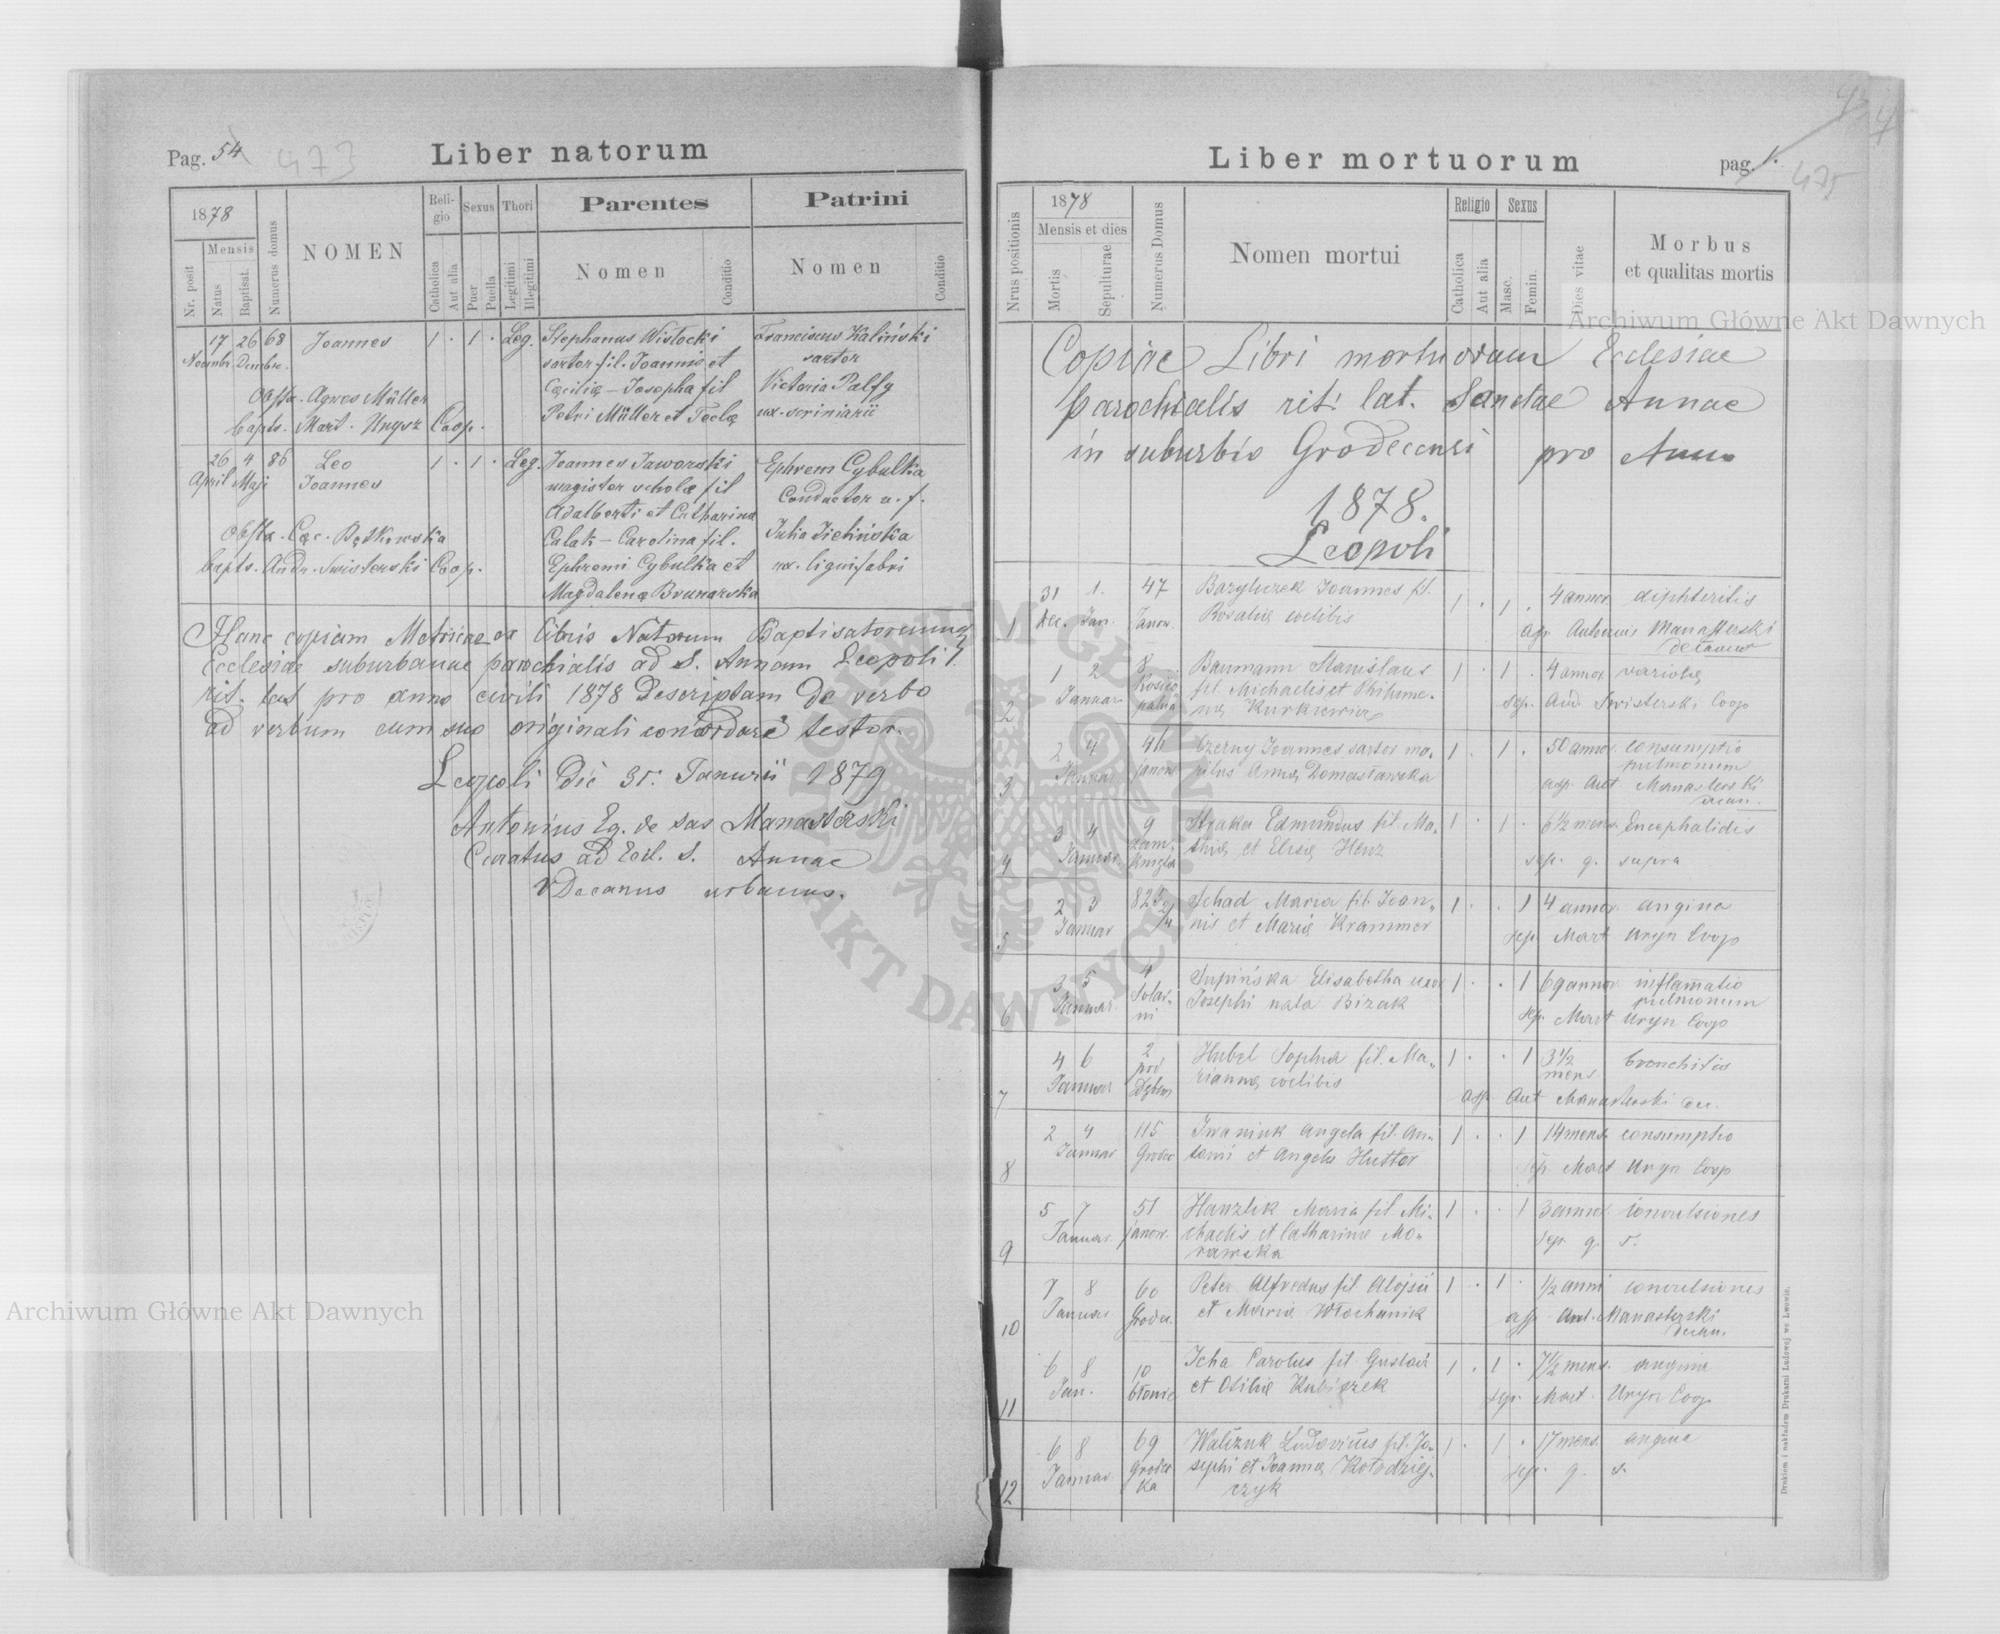 Pag. 54
473
Liber natorum
1878
Mensis
Nr. posit
Natus
Baptisat.
Numerus domus
NOMEN
Religio
Catholica
Aut alia
Sexus
Puer
Puella
Thori
Legitimi
Illegitimi
Parentes
Nomen
Conditio
Patrini
Nomen
Conditio
17 26 68 Joannes 1 . 1 . Leg. Stephanus Wistocki Franciscus Kaliński
Novembr. Dcembr. sartor fil. Joannis et sartor
Cæciliæ – Josepha fil Victoria Palfy
Obstx. Agnes Müller Petri Müller et Teclæ ux. scriniarii
bapts. Mart. Coop.
26 4 86 Leo 1 . 1 . Leg. Joannes Jaworski Ephrem Cybulka
April Maji Joannes magister scholæ fil Conductor v. f.
Adalberti et Catharinæ
Obstx. Cæc. Bętkowska Calak – Carolina fil. Julia Zielińska
bapts. Andr. Swisterski Coop. Ephremi Cybulka et ux. lignifabri
Magdalenæ Brunarska
Hanc copiam Metricae ex libris Natorum Baptisatorumq
Ecclesiae suburbanae parochialis ad S. Annam Leopoli r.
rit. lat pro anno civili 1878 descriptam de verbo
ad verbum cum suo originali concordare testor.
Leopoli die 31. Januarii 1879
Antonius Eq. de Sas Manasterski
Curatus ad Eccl. S. Annae
VDecanus urbanus.
Liber mortuorum
pag. 1.
475
Nrus positionis
1878
Mensis et dies
Mortis
Sepulturae
Numerus Domus
Nomen mortui
Religio
Catholica
Aut alia
Sexus
Masc.
Femin.
Dies vitae
Morbus
et qualitas mortis
Copiae Libri mortuorum Ecclesiae
parochialis rit: lat. Sanctae Annae
in suburbio Grodecensi pro Anno
1878.
Leopoli
1 31 1. 47 Bazyluczek Joannes fil. 1 . 1 . 4 annor diphteritis
Dec. Jan. Janow. Rosaliæ coelibis asp. Antonius Manasterski
decanus
2 1 2 8 Baumann Stanislaus 1 . 1 . 4 annor variola
Januar fil. Michaelis et Philome-
næ Kurkiewicz sep. And. Swisterski Coop
3 2 4 46 Czerny Joannes sartor ma- 1 . 1 . 50 annor consumptio
Januar janow ritus Annæ Domasławska pulmonum
asp. Ant Manasterski
decan.
4 3 4 9 Straka Edmundus fil. Ma- 1 . 1 . 6½ mens. Encephalidis
Januar thiæ et Elisæ Henz sep. q. supra
5 2 3 825/4 Schad Maria fil. Joan- 1 . . 1 4 annor. angina
Januar nis et Mariæ Krammer sep. Mart Uryn Coop
6 3 5 4 Supińska Elisabetha uxor 1 . . 1 69 annor inflam̄atio
Januar. Solar-
ni Josephi nata Bizak pulmonum
sep. Mart Uryn Coop
7 4 6 2 Hubel Sophia fil. Ma- 1 . . 1 3½ mens bronchitis
Januar pod Dębem riannæ coelibis
asp. Ant Manasterski dec.
8 2 4 115 Iwaniuk Angela fil. An- 1 . . 1 14 mens. consumptio
Januar Grodec tonii et Angelæ Hutter sep. Mart Uryn Coop
9 5 7 51 Hanzlik Maria fil Mi- 1 . . 1 3 annor convulsiones
Januar. janow. chaelis et Catharinæ Mo-
rawska sep. q. s.
10 7 8 60 Peter Alfredus fil Alojsii 1 . 1 . ½ anni convulsiones
Januar Grodec. et Mariæ Włochanik asp. Ant. Manasterski
decan.
11 6 8 10 Icha Carolus fil. Gustavi 1 . 1 . 7½ mens. angina
Jan. błonie et Otiliæ Kubiczek sep. Mart. Uryn Coop
12 6 8 69 Walczuk Ludovicus fil. Jo- 1 . 1 . 17 mens. angina
Januar Grodec
ka sephi et Joannæ Kołodziej-
czyk sep. q. s.
Drukiem i nakładem Drukarni Ludowej we Lwowie.
Archiwum Główne Akt Dawnych
Archiwum Główne Akt Dawnych
ARCHIWUM GŁÓWNE AKT DAWNYCH